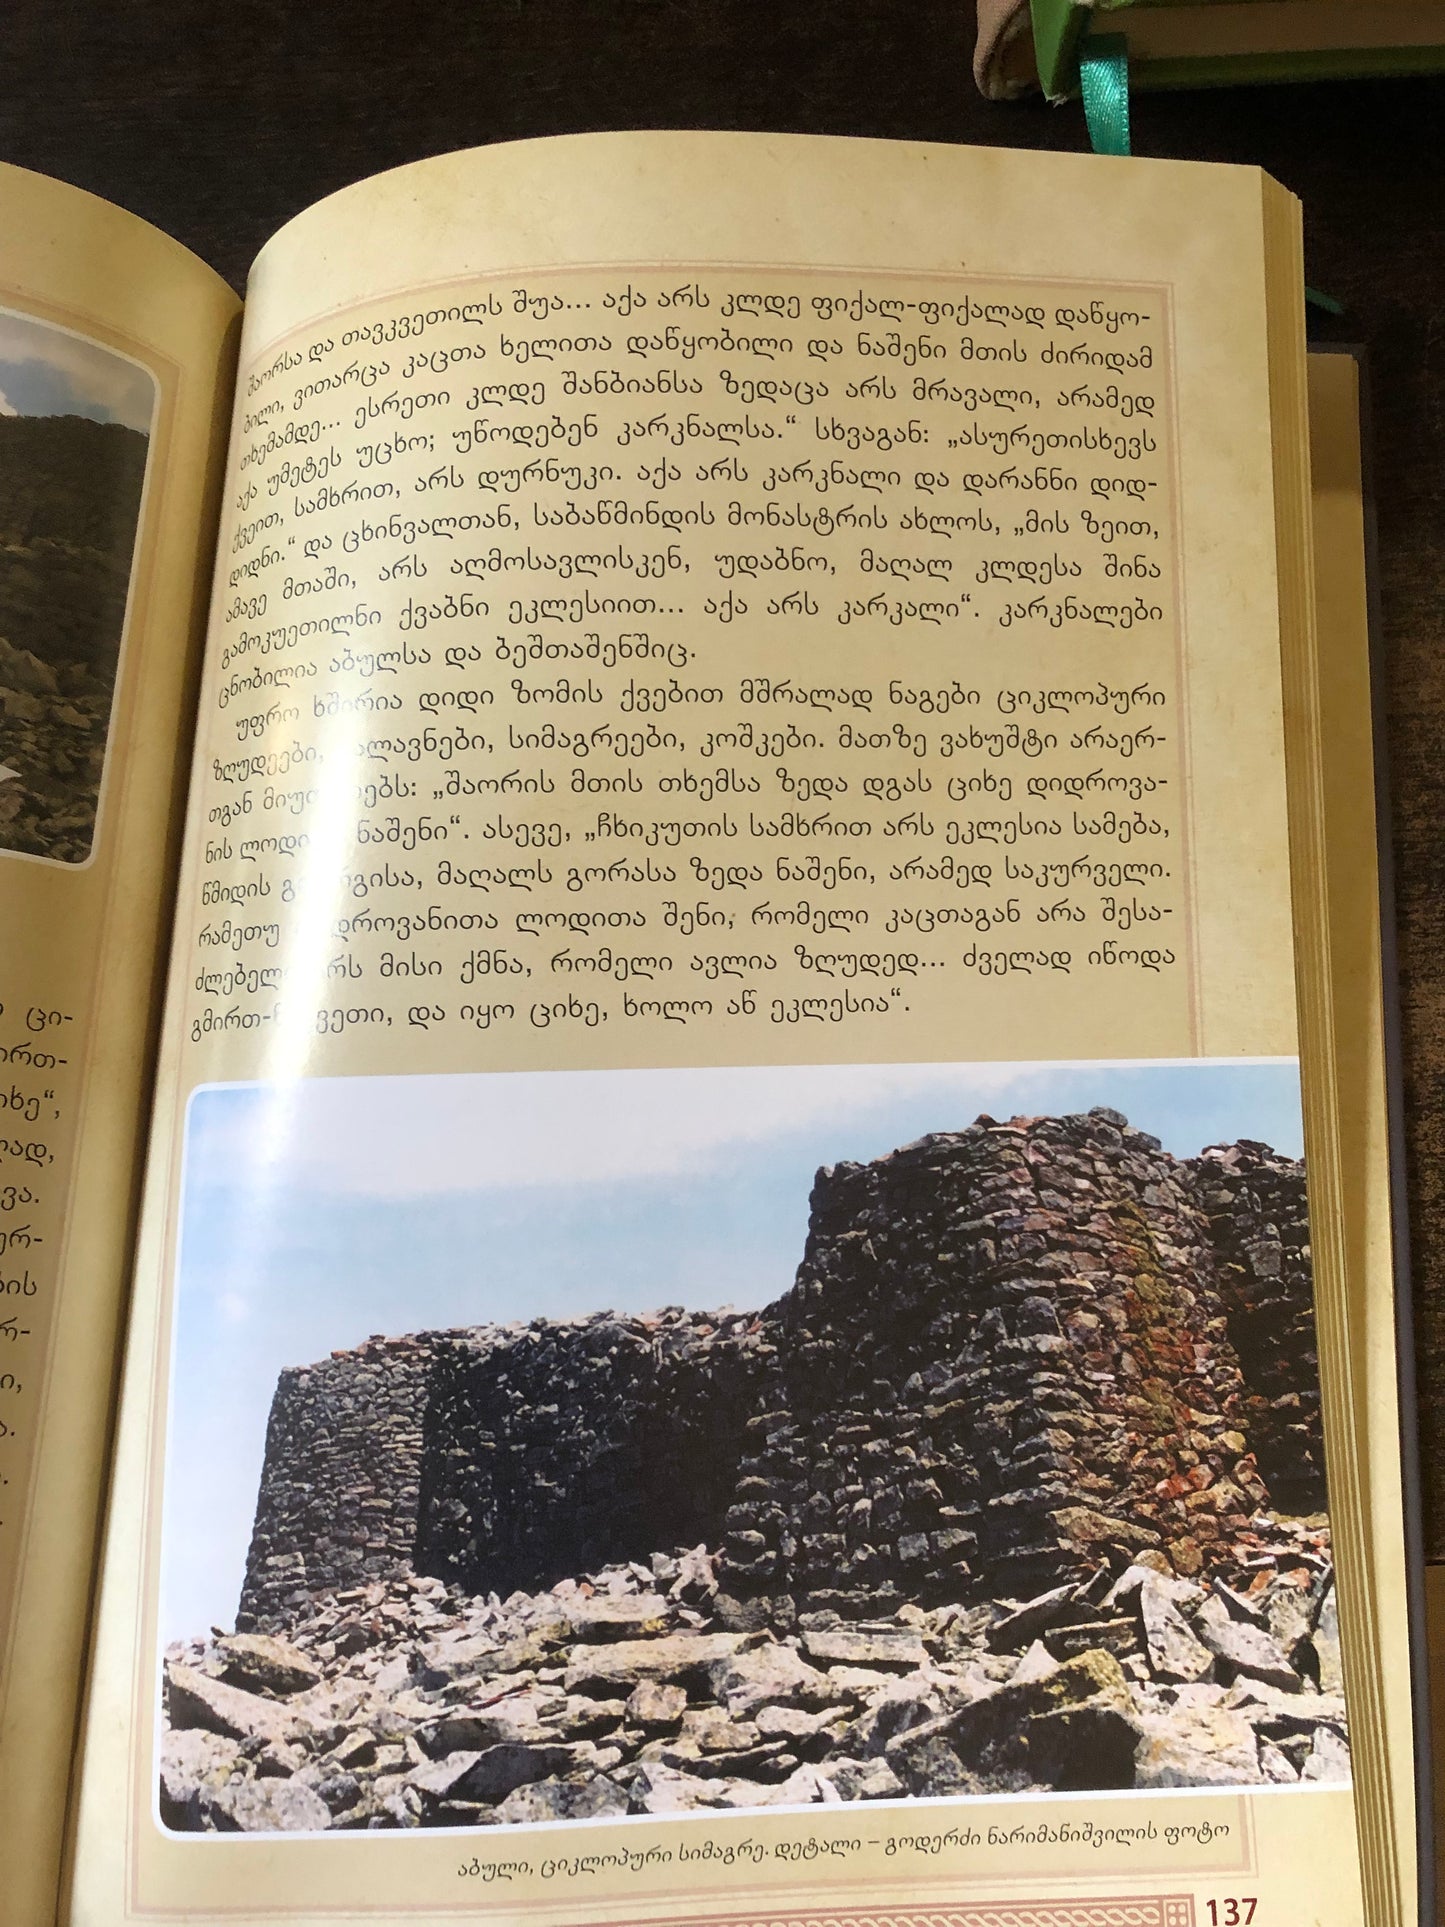 შაორსა და თავკვეთილს შუა... აქა არს კლდე ფიქალ-ფიქალად დაწყო-
ბილი, ვითარცა კაცთა ხელითა დაწყობილი და ნაშენი მთის ძირიდამ
თხემამდე... ესრეთი კლდე შანბიანსა ზედაცა არს მრავალი, არამედ
აქა უმეტეს უცხო; უწოდებენ კარკნალსა.“ სხვაგან: „ასურეთისხევს
ქვეით, სამხრით, არს დურნუკი. აქა არს კარკნალი და დარანნი დიდ-
დიდნი.“ და ცხინვალთან, საბაწმინდის მონასტრის ახლოს, „მის ზეით,
ამავე მთაში, არს აღმოსავლისკენ, უდაბნო, მაღალ კლდესა შინა
გამოკუეთილნი ქვაბნი ეკლესიით... აქა არს კარკალი“. კარკნალები
ცნობილია აბულსა და ბეშთაშენშიც.
უფრო ხშირია დიდი ზომის ქვებით მშრალად ნაგები ციკლოპური
ზღუდეები, გალავნები, სიმაგრეები, კოშკები. მათზე ვახუშტი არაერ-
თგან „შაორის მთის თხემსა ზედა დგას ციხე დიდროვა-
ნის ნაშენი“. ასევე, „ჩხიკუთის სამხრით არს ეკლესია სამება,
წმიდის მაღალს გორასა ზედა ნაშენი, არამედ საკურველი.
რამეთუ ლოდითა შენი, რომელი კაცთაგან არა შესა-
არს მისი ქმნა, რომელი ავლია ზღუდედ... ძველად იწოდა
და იყო ციხე, ხოლო აწ ეკლესია“.
აბული, ციკლოპური სიმაგრე. დეტალი – გოდერძი ნარიმანიშვილის ფოტო
137
ცი-
ლად,